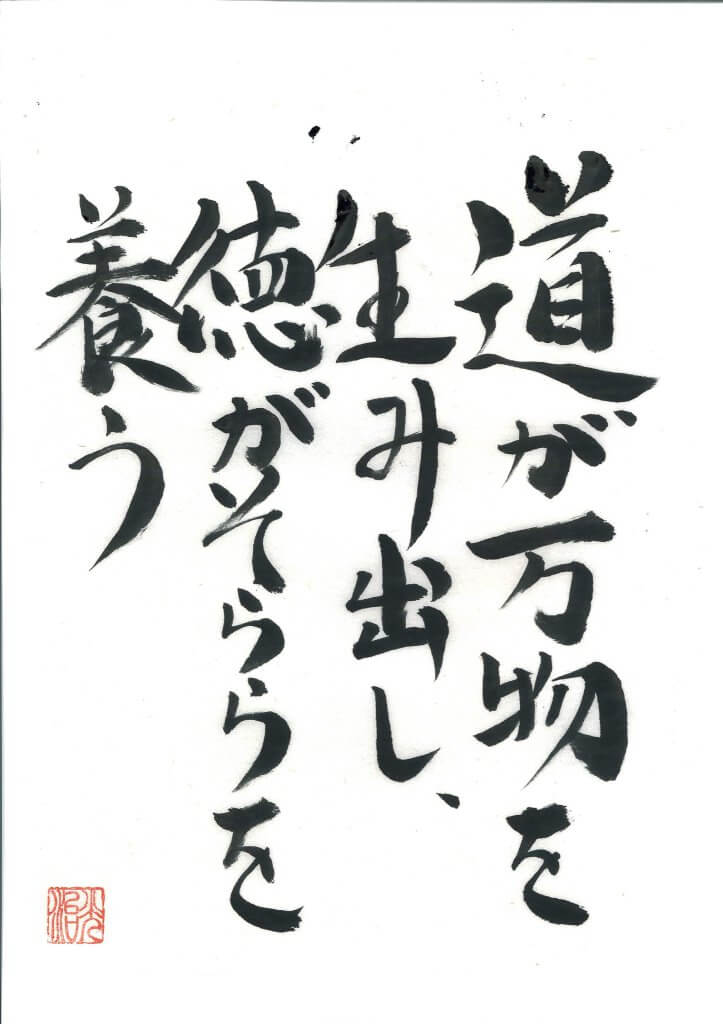 道が万物を
生み出し、
徳がそららを
養う